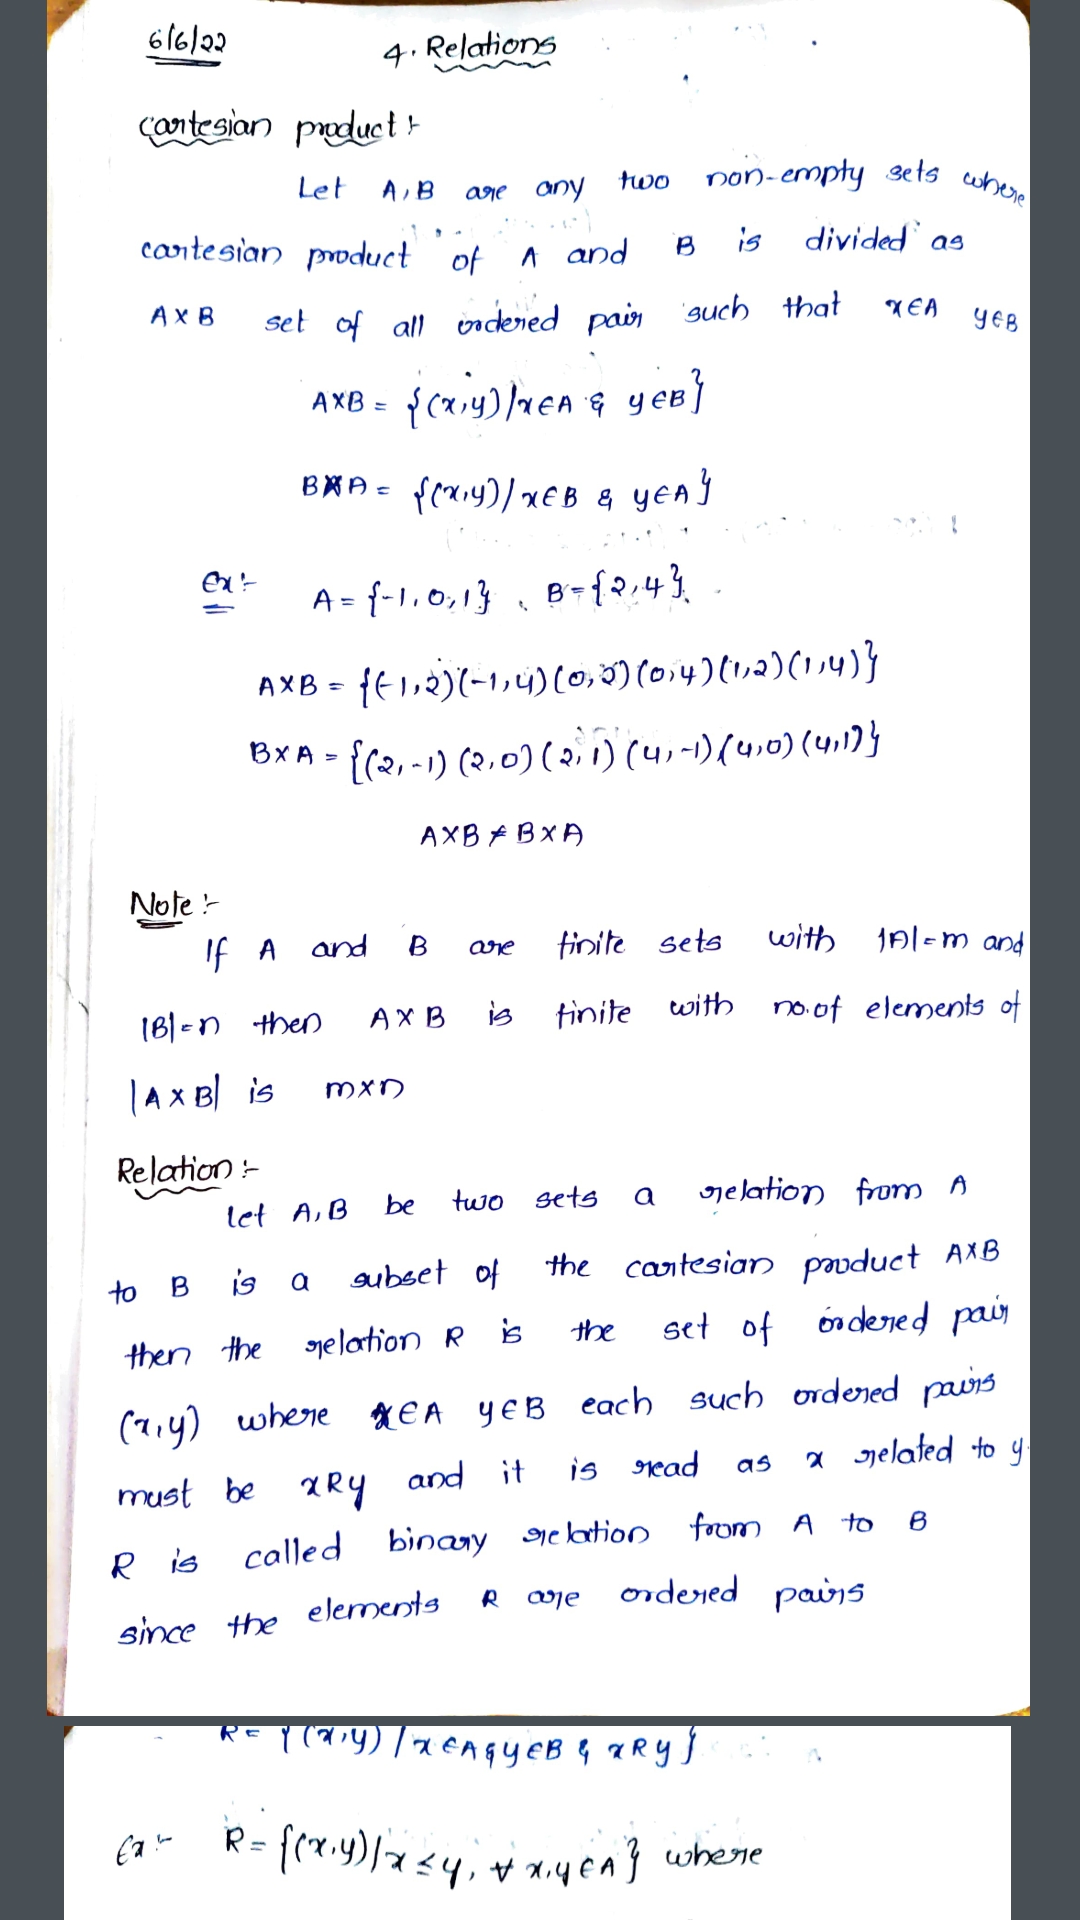 6/6/22
4. Relations
cartesian product :-
Let A, B are any two non-empty sets where
cartesian product of A and B is divided as
A X B set of all ordered pair such that x∈A y∈B
AXB = {(x,y)/x∈A & y∈B}
BXA = {(x,y)/x∈B & y∈A}
Ex:- A = {-1,0,1}, B = {2,4}.
AXB = {(-1,2)(-1,4)(0,2)(0,4)(1,2)(1,4)}
BXA = {(2,-1)(2,0)(2,1)(4,-1)(4,0)(4,1)}
AXB ≠ BXA
Note :-
If A and B are finite sets with |A|=m and
|B|=n then A X B is finite with no.of elements of
|A X B| is mxn
Relation :-
let A, B be two sets a relation from A
to B is a subset of the cartesian product AXB
then the relation R is the set of ordered pair
(x,y) where x∈A y∈B each such ordered pairs
must be xRy and it is read as x related to y.
R is called binary relation from A to B
since the elements R are ordered pairs
R = {(x,y)/x∈A & y∈B & xRy}
Ex:- R = {(x,y)/x ≤ y, ∀ x,y ∈ A} where